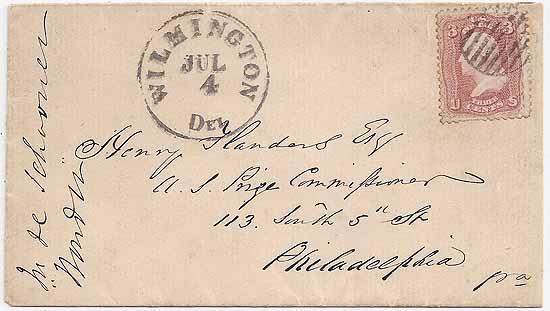 WILMINGTON
JUL
4
Del
U.S.
3 3
THREE
CENTS
U S
Henry Flanders Esq
U. S. Prize Commissioner
113. South 5" St
Philadelphia
pa
Schooner